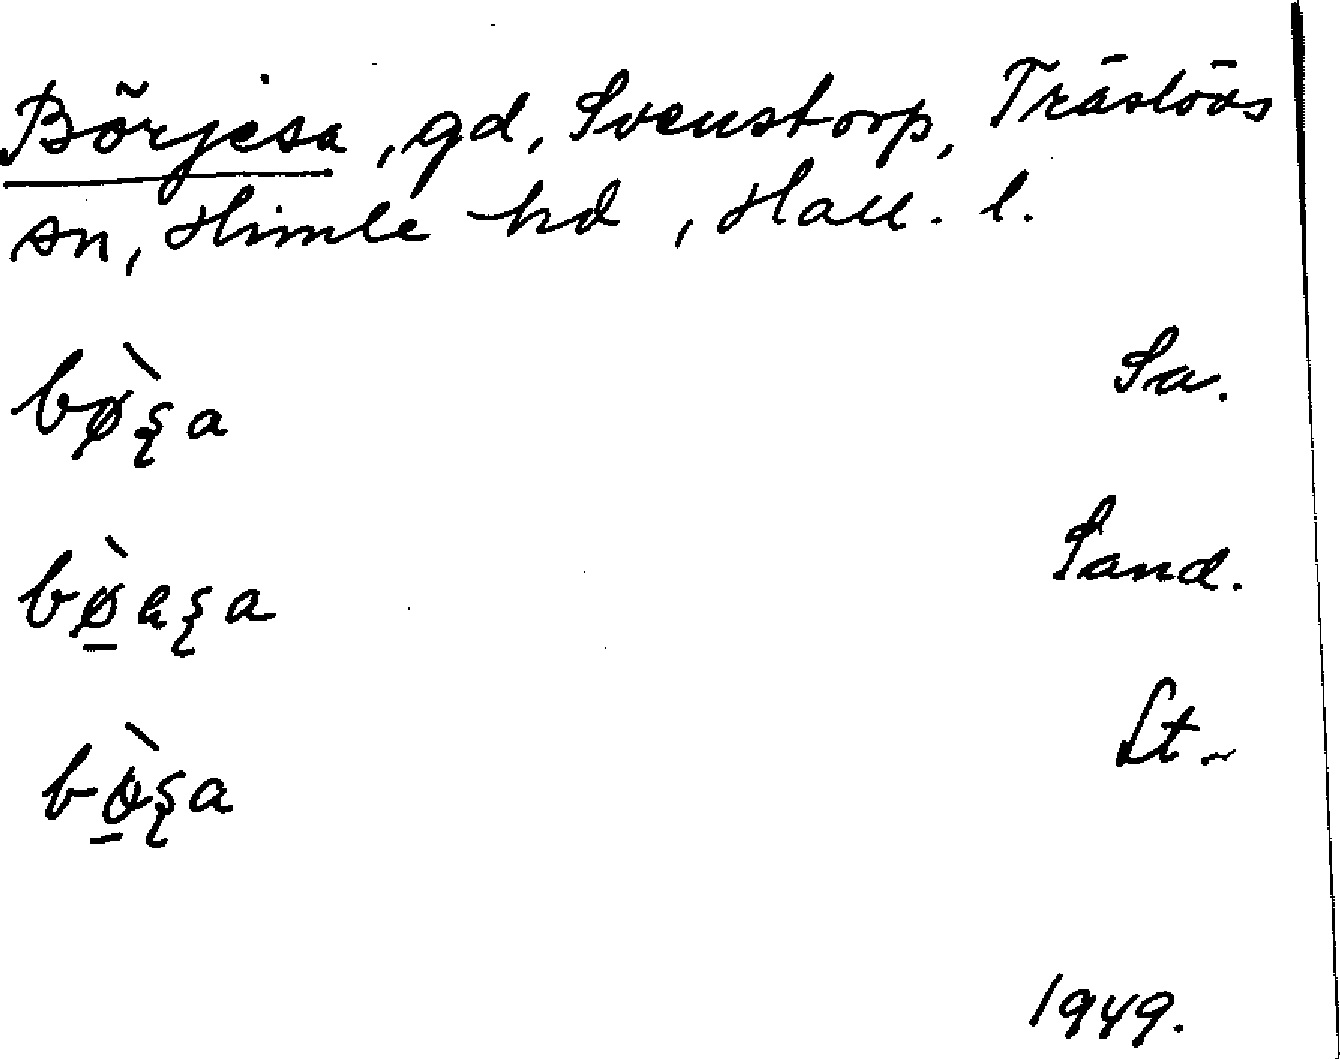 Börjesa, gd, Svenstorp, Träslövs
sn, Himle hd, Hall. l.
bø̀ʂa Sa.
bø̠̀ʀʂa Sand.
bø̠̀ʂa St.
1949.